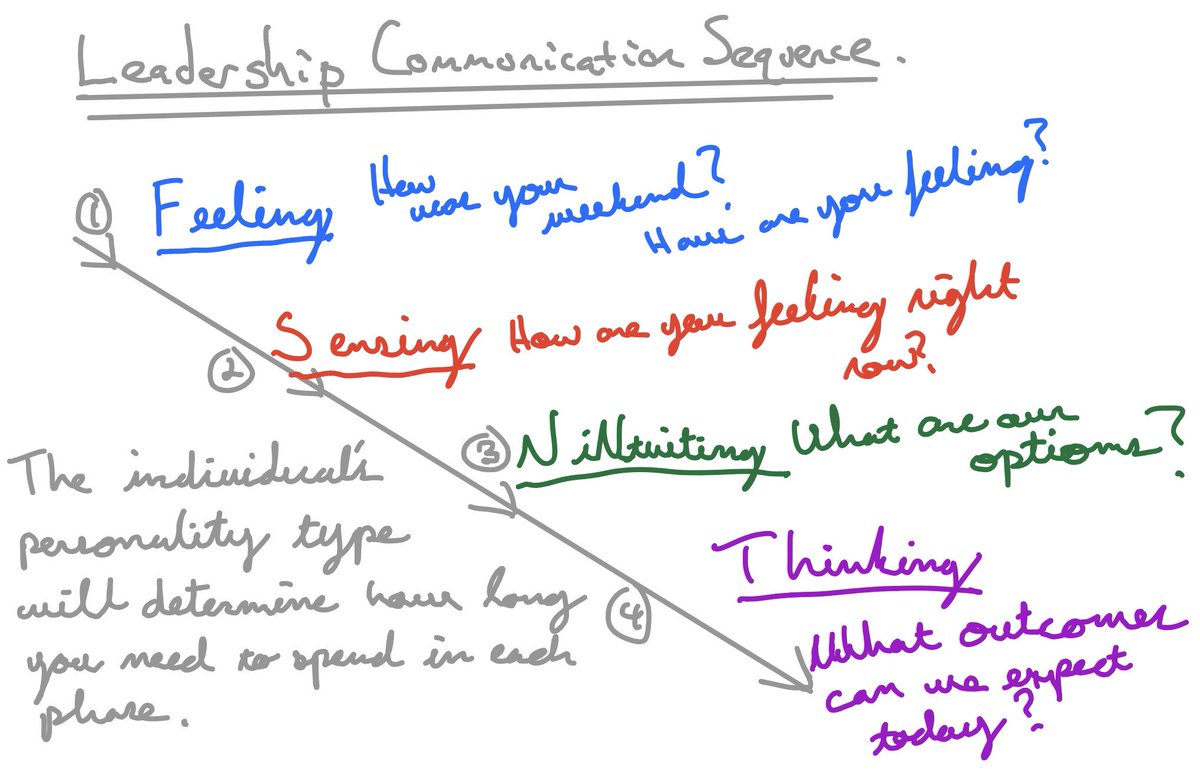 Leadership Communication Sequence.
① Feeling How was your weekend?
How are you feeling?
② Sensing How are you feeling right
now?
③ NiNtuiting What are our
options?
④ Thinking
What outcomes
can we expect
today?
The individual's
personality type
will determine how long
you need to spend in each
phase.